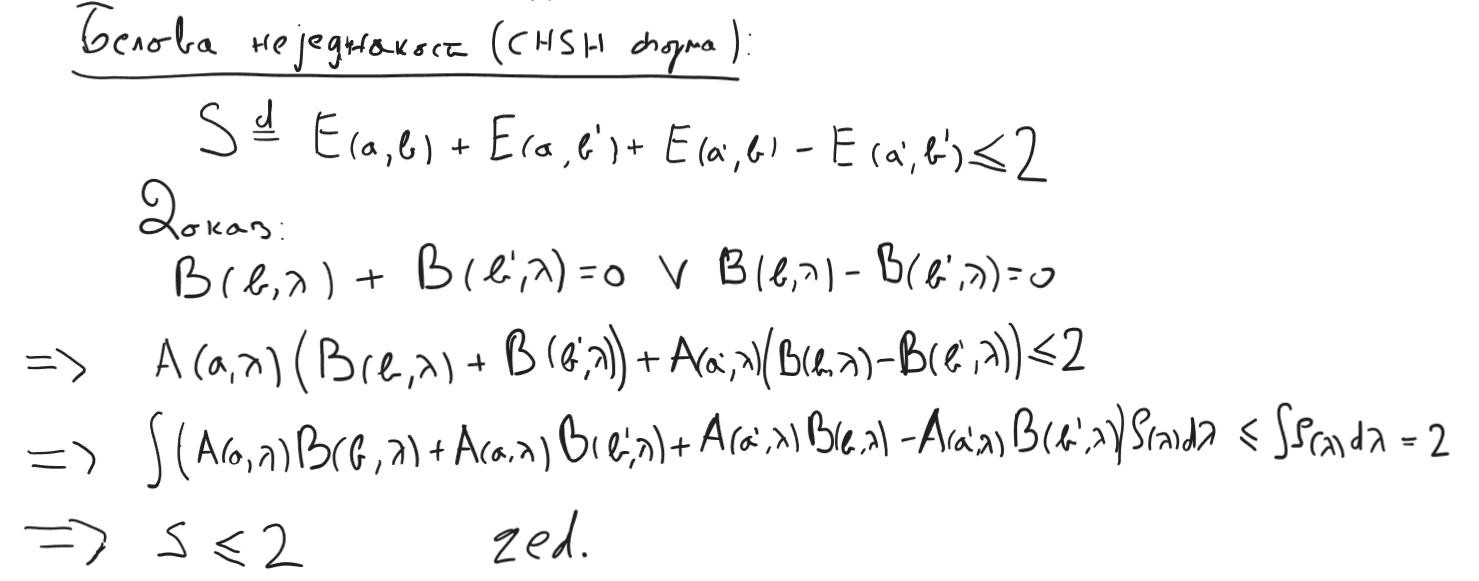 Белова неједнакост (CHSH форма):
S ≝ E(a,b) + E(a,b') + E(a',b) - E(a',b') ≤ 2
Доказ:
B(b,λ) + B(b',λ) = 0 ∨ B(b,λ) - B(b',λ) = 0
=> A(a,λ)(B(b,λ) + B(b',λ)) + A(a',λ)(B(b,λ) - B(b',λ)) ≤ 2
=> ∫(A(a,λ)B(b,λ) + A(a,λ)B(b',λ) + A(a',λ)B(b,λ) - A(a',λ)B(b',λ))ρ(λ)dλ ≤ ∫ρ(λ)dλ = 2
=> S ≤ 2 qed.